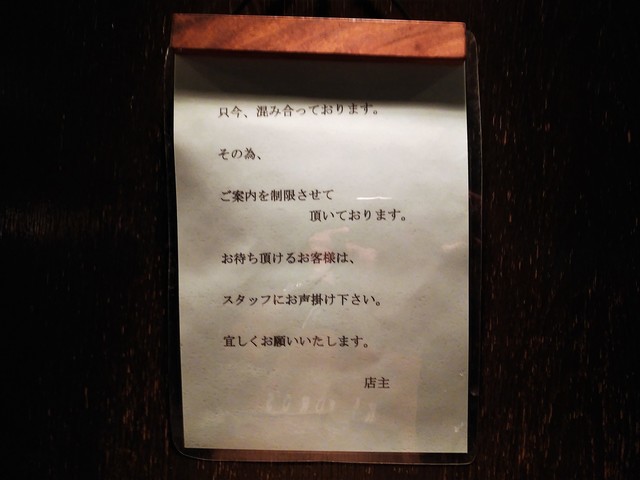 只今、混み合っております。
その為、
ご案内を制限させて
頂いております。
お待ち頂けるお客様は、
スタッフにお声掛け下さい。
宜しくお願いいたします。
店主